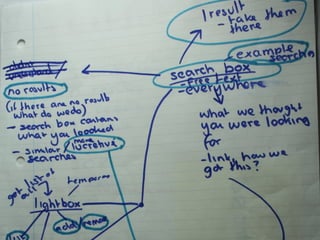 1 result
- take them
there
example
searches
search box
- free text
- everywhere
no results
(if there are no result
what do we do)
- search box contains
what you looked
- similar / more lucrative
searches
what we thought
you were looking
for
- link, how we
got this?
get list of
tempermr
lightbox
add / remove